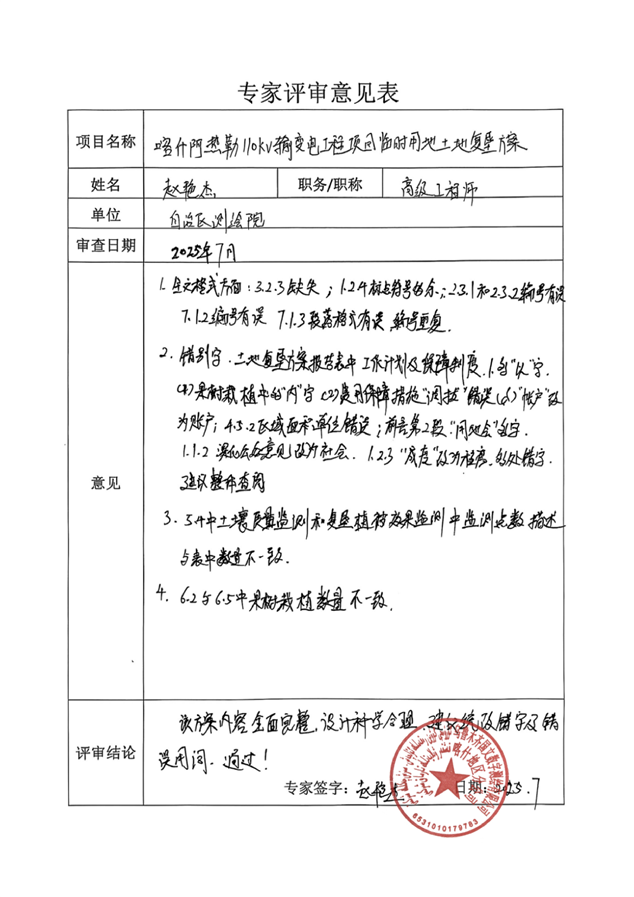 专家评审意见表
项目名称 喀什阿热勒110kV输变电工程项目临时用地土地复垦方案
姓名 赵艳杰 职务/职称 高级工程师
单位 自治区测绘院
审查日期 2025年7月
意见
1. 全文格式方面:3.2.3缺失;1.2.4标点符号多余;2.3.1和2.3.2编号有误
7.1.2编号有误 7.1.3段落格式有误,编号重复.
2. 错别字.土地复垦方案报告表中工作计划及保障制度.1.多"以"字.
果树栽植中的"内"字 (2)费用保障措施"调拨"错误(6)"帐户"改
为账户;4.3.2区域面积单位错误;前言第2段"用地"多字.
1.1.2 公众意见改为社会.1.2.3"成度"改为程度.多处错字.
建议整体查阅
3. 5.4中土壤质量监测和复垦植被效果监测中监测点数描述
与表中数量不一致.
4. 6.2与6.5中果树栽植数量不一致.
评审结论
该方案内容全面完整,设计科学合理,建议修改错字及错
误用词.通过!
专家签字:赵艳杰 日期:2025.7
喀什地区分公司
6531010179763